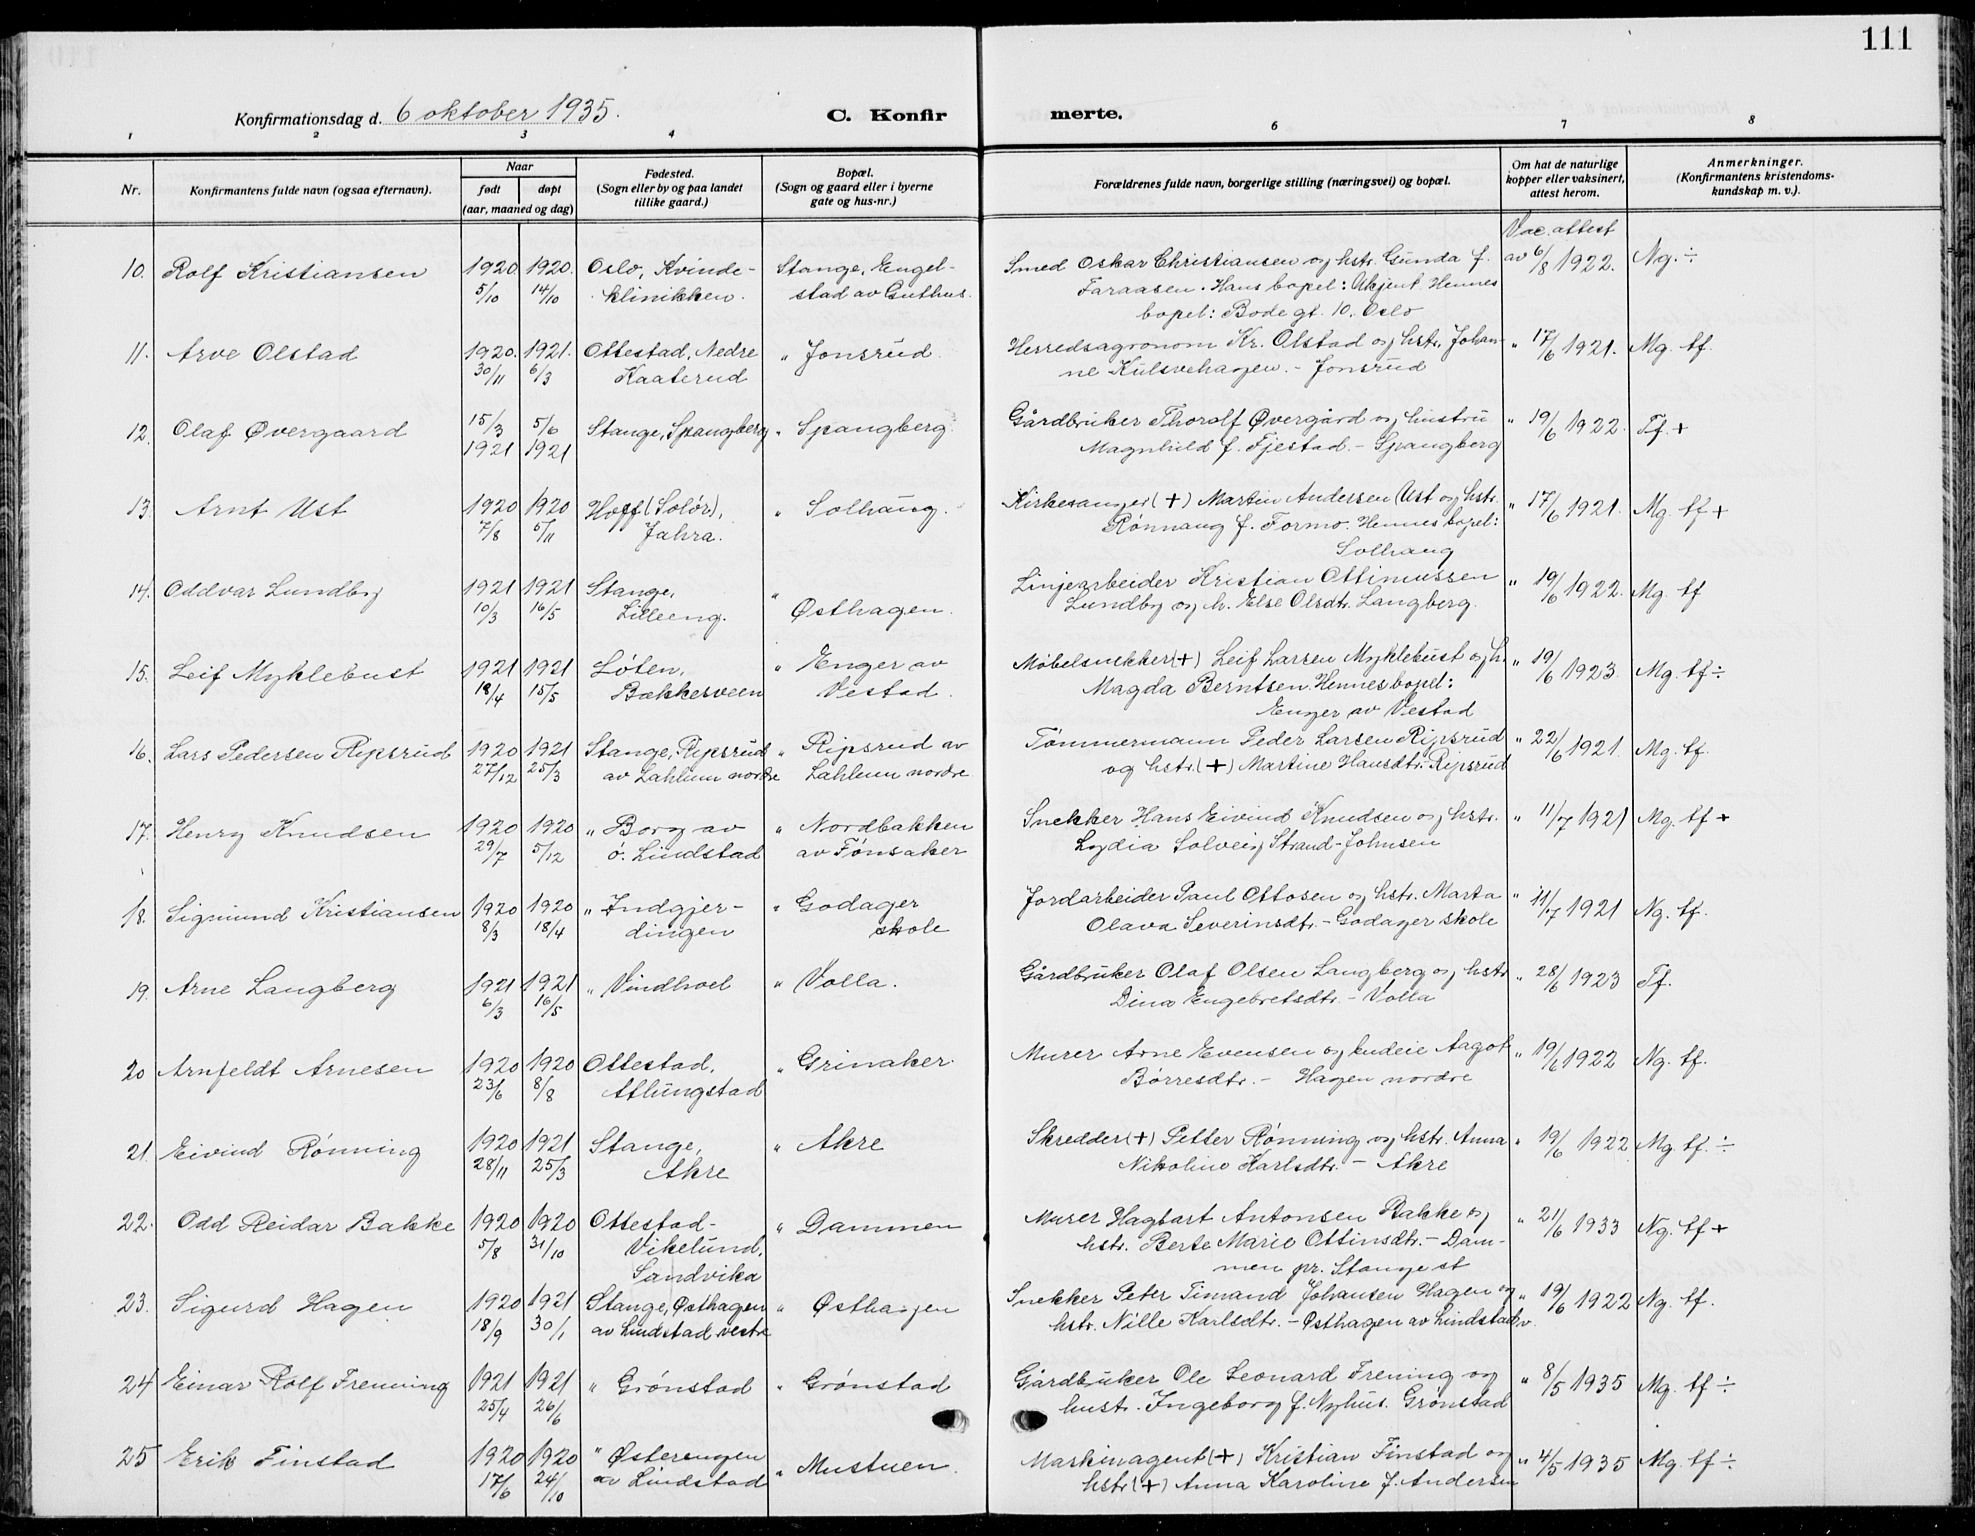 111
Konfirmationsdag d. 6 oktober 1935.
C. Konfirmerte.
1 2 3 4 6 7 8
Nr.
Konfirmantens fulde navn (ogsaa efternavn).
Naar
født
døpt
(aar, maaned og dag)
Fødested.
(Sogn eller by og paa landet
tillike gaard.)
Bopæl.
(Sogn og gaard eller i byerne
gate og hus-nr.)
Forældrenes fulde navn, borgerlige stilling (næringsvei) og bopæl.
Om hat de naturlige
kopper eller vaksinert,
attest herom.
Anmerkninger.
(Konfirmantens kristendoms-
kundskap m. v.).
Vac. attest
10. Rolf Kristiansen 1920. 1920. Oslo, Kvinde- Stange, Engel- Smed Oskar Christiansen og hstr. Gunda f. av 6/8 1922. Ng. ÷
5/10 14/10 klinikken. stad av Guthus. Faraasen. Hans bopel: Ukjent Hennes
bopel: Bode gt. 10. Oslo
11. Arve Olstad 1920. 1921. Ottestad, Nedre " Jonsrud. Herredsagronom Kr. Olstad og hstr. Johan- " 17/6 1921. Mg. tf.
30/11 6/3 Kaaterud ne Kulsvehagen. - Jonsrud
12. Olaf Øvergaard 15/3 5/6 Stange, Spangberg " Spangberg. Gårdbruker Thoralf Øvergård og hustru " 19/6 1922. Tf. +
1921 1921 Magnhild f. Fjestad. - Spangberg
13. Arnt Ust 1920 1920 Hoff (Solør), " Solhaug. Kirkesanger (+) Martin Andersen Ust og hstr. " 17/6 1921. Mg. tf +
7/8 Jahra. Rønnaug f. Formo. Hennes bopel:
Solhaug
14. Oddvar Lundby 1921 1921 Stange, " Linjearbeider Kristian Ottimussen " 19/6 1922. Mg. tf
10/3 16/5 Lilleeng. Østhagen. Lundby og h. Else Olsdtr. Langberg.
15. Leif Myklebust 1921 1921 Løten, " Enger av Møbelsnekker (+) Leif Larsen Myklebust og h. " 19/6 1923. Mg. tf ÷
18/4 15/5 Bakkerveen Vestad. Magda Berntsen. Hennes bopel:
Enger av Vestad
16. Lars Pedersen Ripsrud 1920 1921 Stange, Ripsrud " Ripsrud av Tømmermann Peder Larsen Ripsrud " 22/6 1921. Mg. tf.
27/12 25/3 av Lahlum nordre Lahlum nordre og hstr. (+) Martine Hansdtr. Ripsrud
17. Henry Knudsen 1920 1920 " Borg av " Nordbakken Snekker Hans Eivind Knudsen og hstr. " 11/7 1921 Mg. tf +
29/7 5/12 ö. Lindstad av Tønsaker Lydia Solveig Strand-Johnsen
18. Sigmund Kristiansen 1920 1920 " Indgjer- " Godager Jordarbeider Paul Ottosen og hstr. Marta " 11/7 1921 Ng. tf.
8/3 18/4 dingen skole Olava Severinsdtr. - Godager skole
19. Arne Langberg 1921 1921 " Vindhoel " Volla. Gårdbruker Olaf Olsen Langberg og hstr " 28/6 1923 Tf.
6/3 16/5 Dina Engebretsdtr. - Volla
20 Arnfeldt Arnesen 1920 1920 Ottestad, " Grinaker. Murer Arne Evensen og Aagot " 19/6 1922 Ng. tf.
23/6 8/8 Atlungstad Børresdtr. - Hagen nordre
21. Eivind Rønning 1920 1921 Stange, " Akre Skredder (+) Petter Rønning og hstr. Anna " 19/6 1922. Mg. tf. ÷
28/11 25/3 Akre Nikoline Karlsdtr. - Akre
22. Odd Reidar Bakke 1920 1920 Ottestad- " Dammen Murer Hagbart Antonsen Bakke og " 21/6 1933 Ng. tf +
5/8 31/10 Vikelund, hstr. Berte Marie Ottinsdtr. - Dam-
Sandvika men pr. Stange st
23. Sigurd Hagen 1920 1921 Stange, Østhagen " Østhagen Snekker Peter Timand Johansen Hagen og " 19/6 1922 Ng. tf.
18/9 30/1 av Lindstad vestre hstr. Nille Karlsdtr. - Østhagen av Lindstad v.
24 Einar Rolf Frenning 1921 1921 " Grønstad " Grønstad Gårdbruker Ole Leonard Frening og " 8/5 1935 Mg. tf ÷
25/4 26/6 hustr. Ingeborg f. Nyhus. Grønstad
25 Erik Finstad 1920 1920 " Østerengen " Mustuen. Maskinagent (+) Kristian Finstad og " 4/5 1935 Mg. tf ÷
17/6 24/10 av Lindstad hstr (+) Anna Karoline f. Andersen